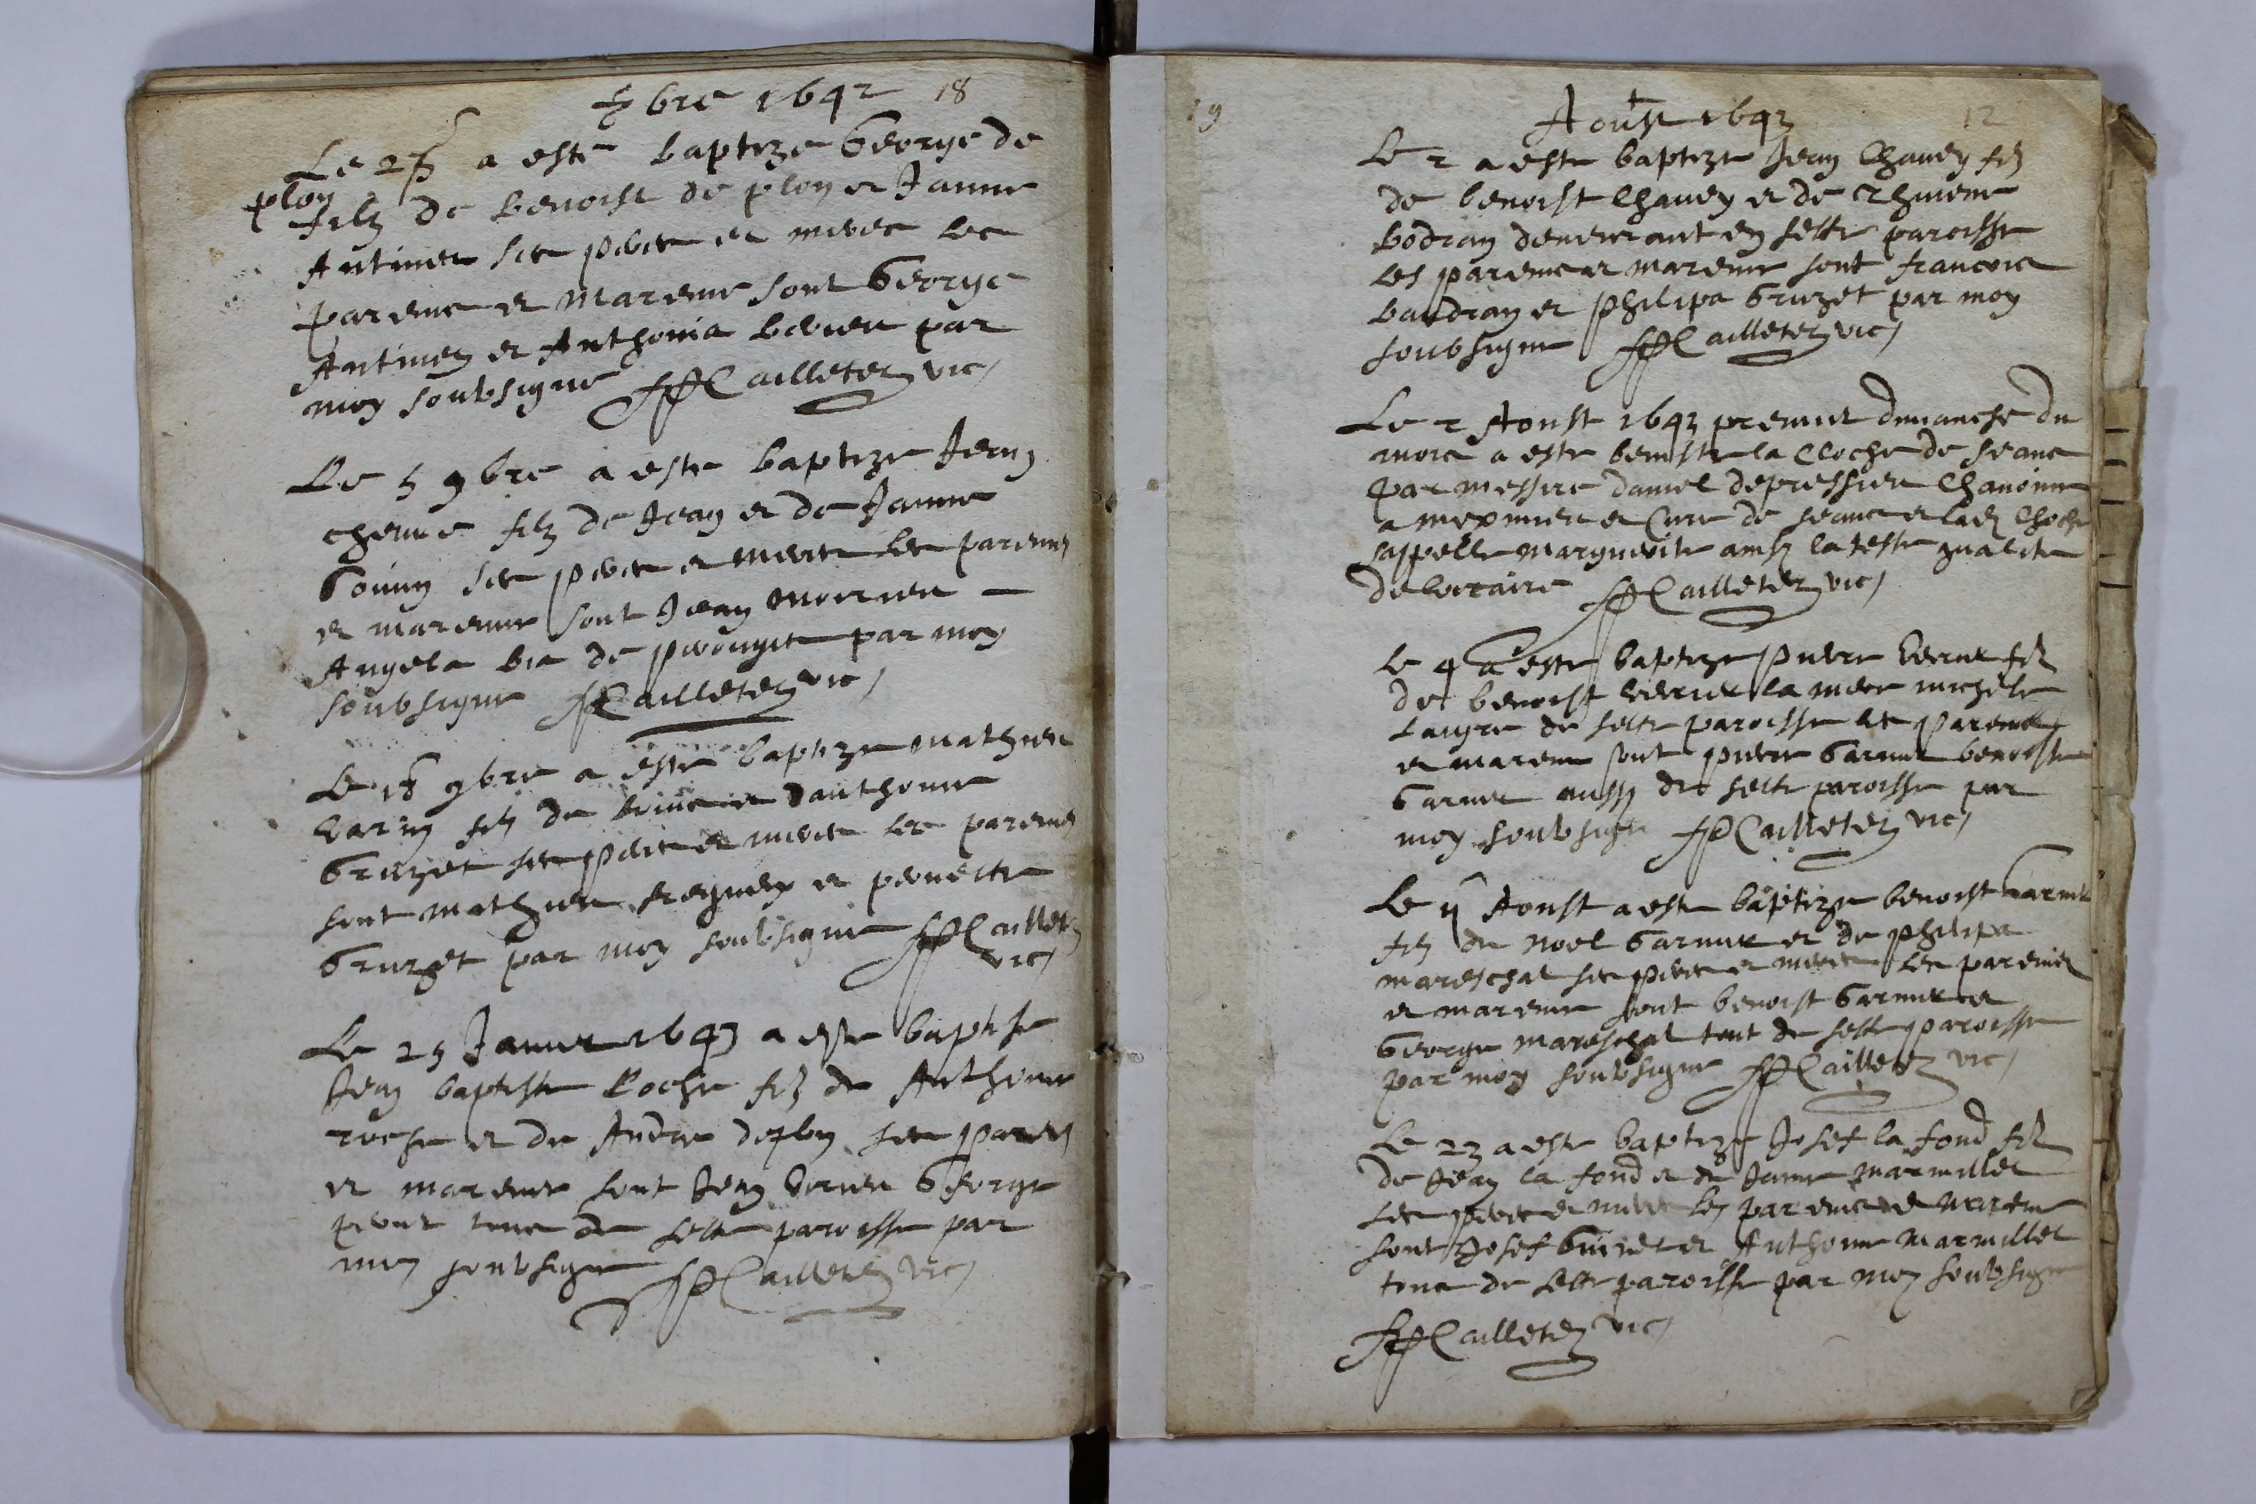 bre 1642 18
Le 2 a esté baptize George de
ploy
filz de benoist de ploy et Janne
Antimer ses peres et meres Les
pareins et Mareine sont George
Antimer et Anthonia par
moy soubsigne Cailletez vic
Le 5 9bre a este baptize Jean
filz de Jean et de Janne
Gouny ses peres et meres Les pareins
et mareine sont Jean
Angela de par moy
soubsigne Cailletez vic
Le 18 9bre a este baptize mathieu
Varin filz de et danthonie
Gruzet ses peres et meres les pareins
sont mathieu et pernette
Gruzet par moy soubsigne Cailletez
vic
Le 25 Janvier 1643 a este baptise
Jean baptiste Roche filz de Anthoine
roche et de Andree deploy ses Pareins
et mareine sont Jean George
tous de sette paroisse par
moy soubsigne Cailletez vic
19 Aoust 1643 12
Le 2 a este baptize Jean Chavey filz
de benoist Chavey et de
Bodran demeurant en sette paroisse
Les pareins et mareine sont francois
baudran et Philipa Gruzet par moy
soubsigne Cailletez vic
Le 2 Aoust 1643 premier dimanche du
mois a este beniste la Cloche de
par messire daniel depressieu Chanoine
a meximieu et Cure de et lad Cloche
sappelle Marguerite
Cailletez vic
Le 4 a este baptize pierre filz
de benoist la mere michele
de sette paroisse les Pareins
et mareine sont pierre Garnier benoiste
Garnier aussy de sette paroisse par
moy soubsigne Cailletez vic
Le 11 Aoust a este baptize benoist Garnier
filz de Noel Garnier et de philipa
mareschal ses peres et meres Les pareins
et mareine sont benoist Garnier et
George mareschal tout de sette paroisse
par moy soubsigne Cailletez vic
Le 23 a este baptize Josef la fond filz
de Jean la fond et de Janne Marmillet
ses peres et meres Les pareins et Mareine
sont Josef et Anthoine Marmillet
tous de sette paroisse par moy soubsigne
Cailletez vic